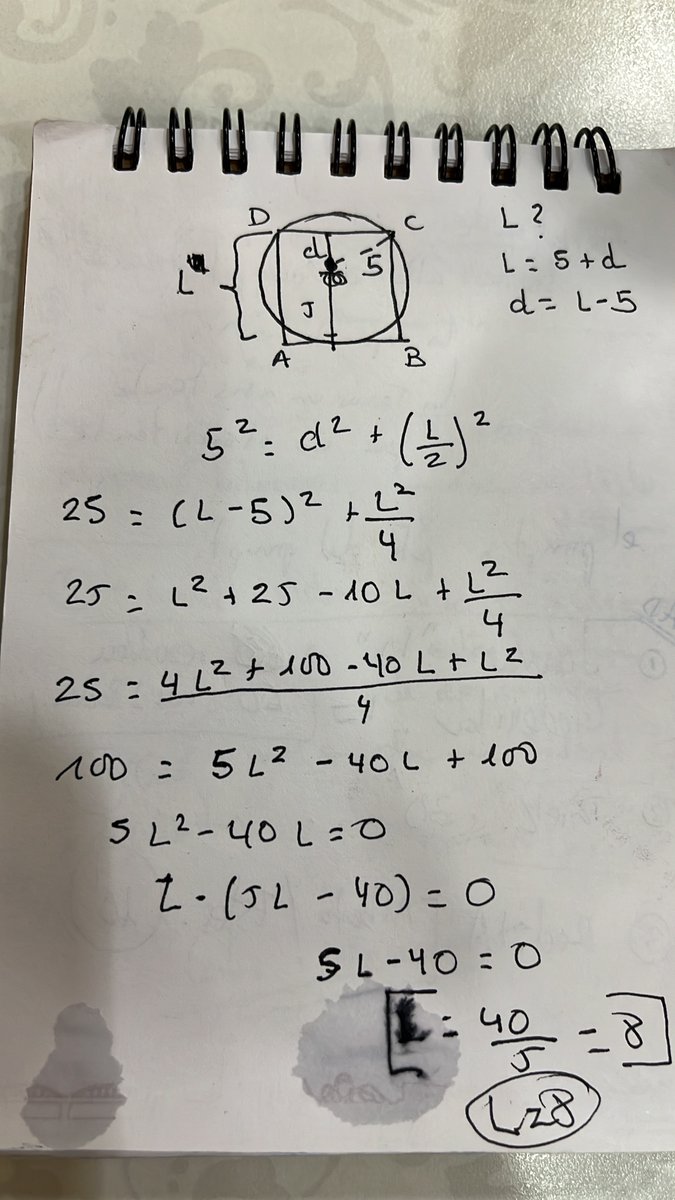 D C
L ?
d
5
L = 5 + d
L
5
d = L - 5
A B
5² = d² + (L/2)²
25 = (L - 5)² + L²/4
25 = L² + 25 - 10L + L²/4
25 = (4L² + 100 - 40L + L²)/4
100 = 5L² - 40L + 100
5L² - 40L = 0
L · (5L - 40) = 0
5L - 40 = 0
[L = 40/5 = 8]
L = 8